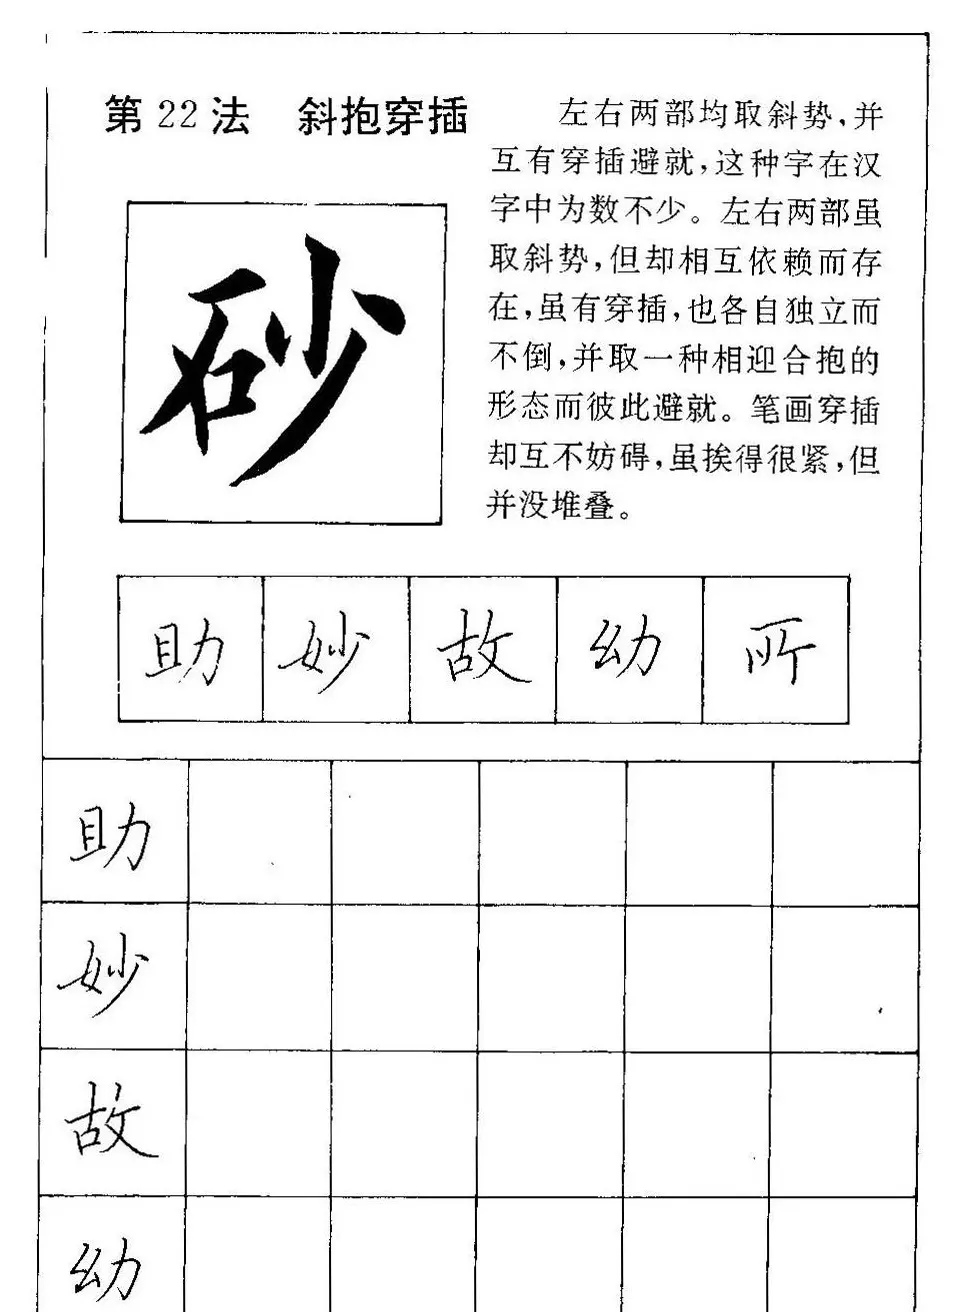 第22法 斜抱穿插
左右两部均取斜势，并
互有穿插避就，这种字在汉
字中为数不少。左右两部虽
取斜势，但却相互依赖而存
在，虽有穿插，也各自独立而
不倒，并取一种相迎合抱的
形态而彼此避就。笔画穿插
却互不妨碍，虽挨得很紧，但
并没堆叠。
砂
助 妙 故 幼 所
助
妙
故
幼